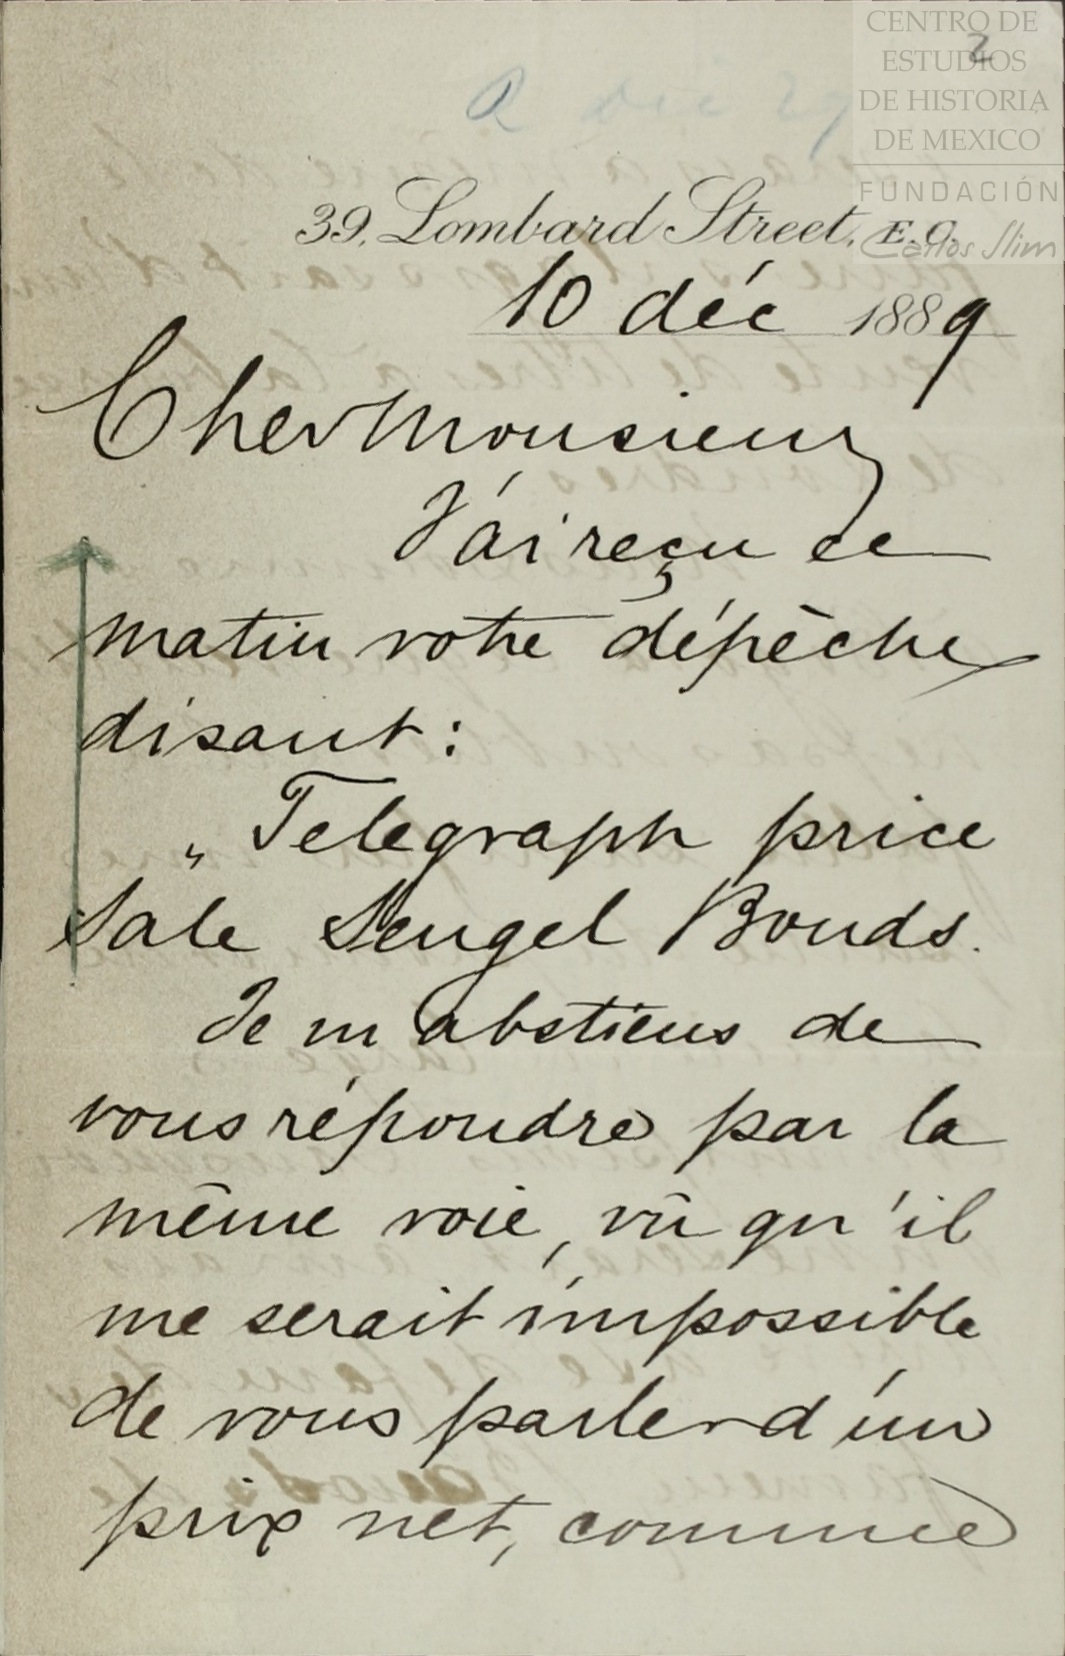 CENTRO DE
ESTUDIOS
DE HISTORIA
DE MEXICO
FUNDACIÓN
Carlos Slim
2
39, Lombard Street, E.C.
10 déc 1889
Cher Monsieur
J'ai reçu ce
matin votre dépêche
disant :
„ Telegraph price
Sale Sengel Bonds.
Je m'abstiens de
vous répondre par la
même voie, vû qu'il
me serait impossible
de vous parler d'un
prix net, comme